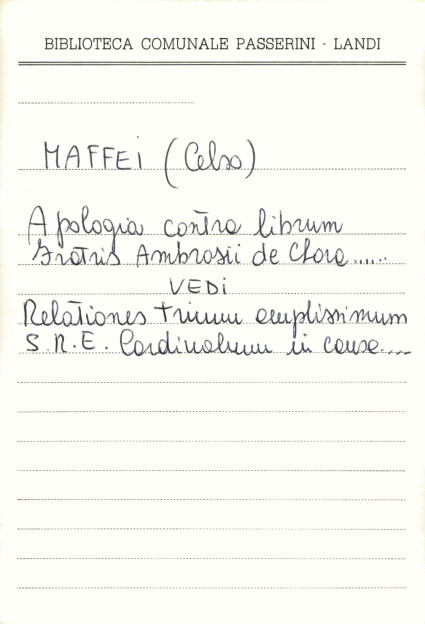 BIBLIOTECA COMUNALE PASSERINI - LANDI
MAFFEI (Celso)
Apologia contra librum
Fratris Ambrosii de Chora......
VEDI
Relationes trium amplissimum
S.R.E. Cardinalium in causa....